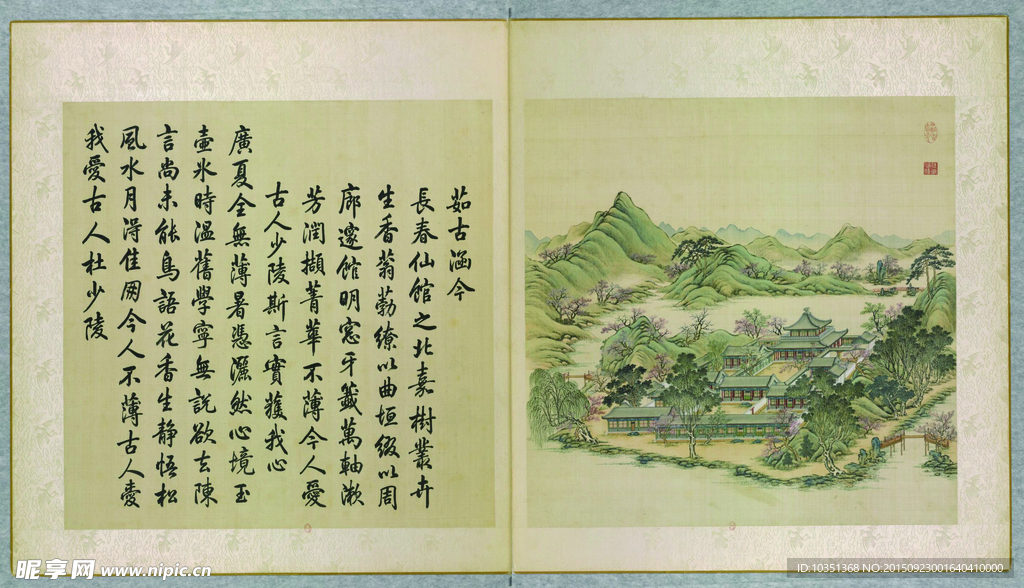 茹古涵今
長春仙館之北嘉樹叢卉
生香蓊葧繚以曲垣綴以周
廊邃館明窓牙籤萬軸漱
芳潤擷菁華不薄今人愛
古人少陵斯言實獲我心
廣夏全無薄暑憑灑然心境玉
壺氷時溫舊學寧無說欲去陳
言尚未能鳥語花香生靜悟松
風水月淂佳朋今人不薄古人愛
我愛古人杜少陵
昵享网 www.nipic.cn
ID:10351368 NO:20150923001640410000